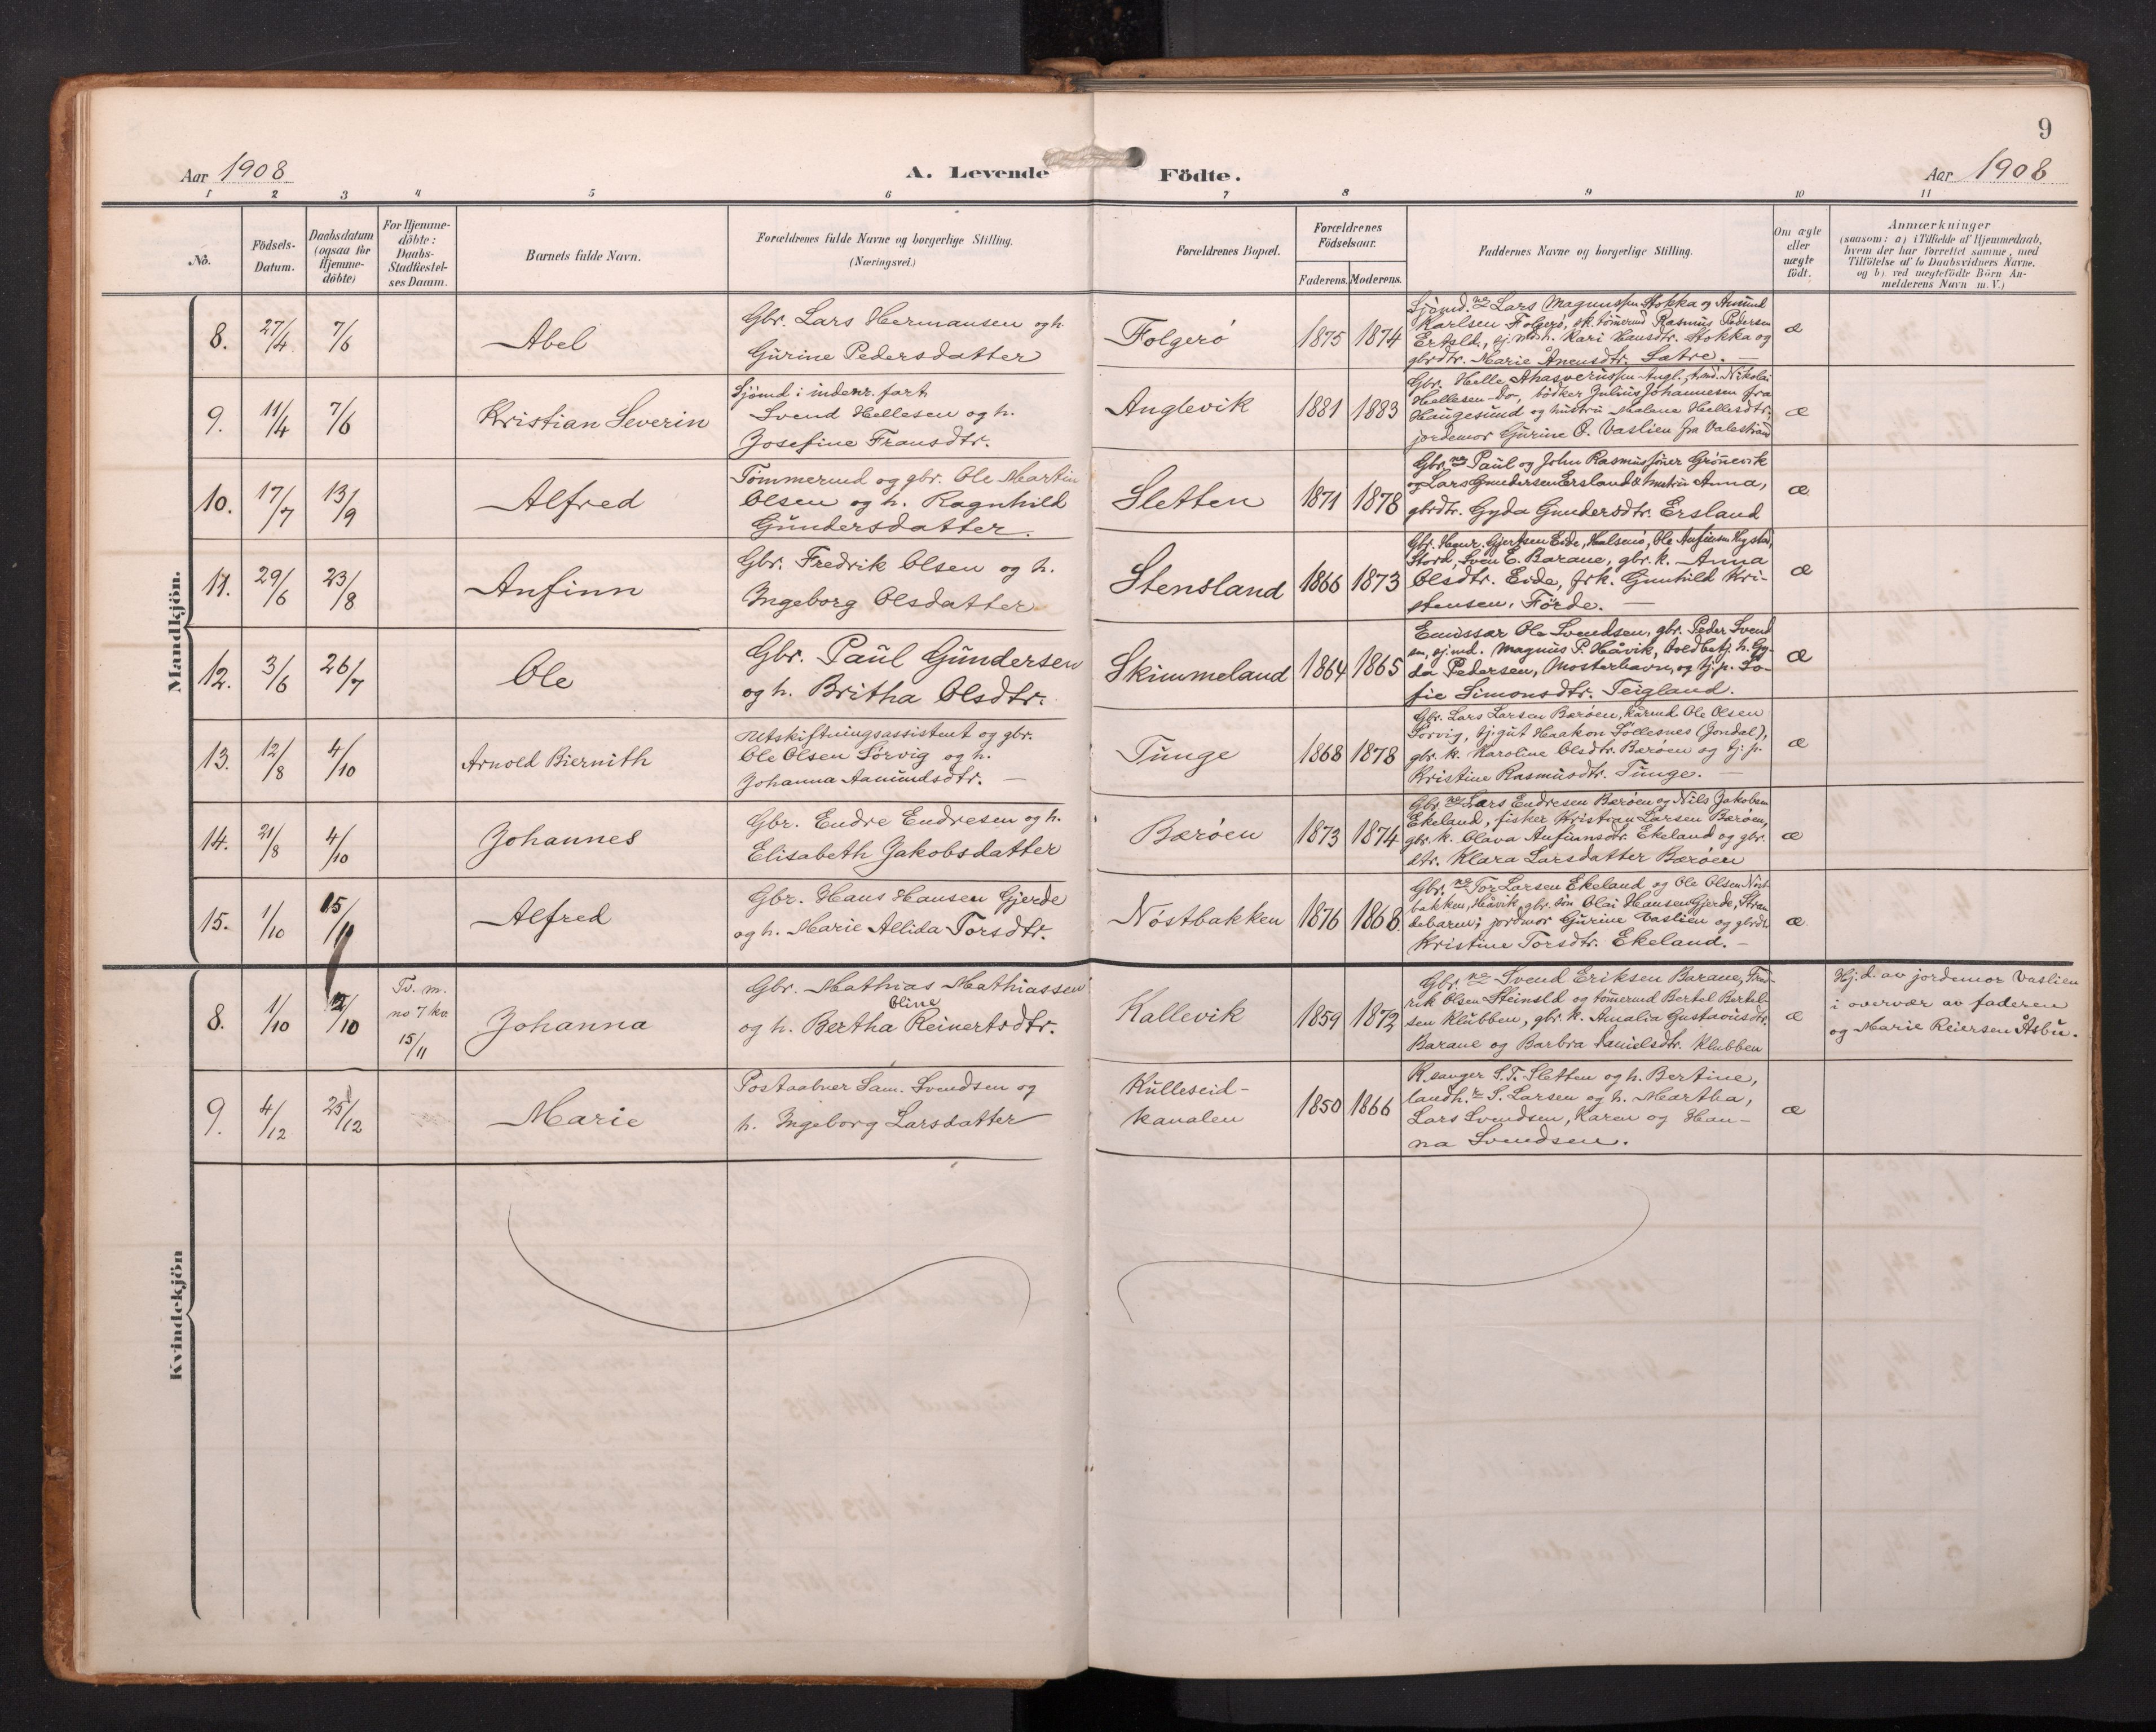 9
Aar 1908
A. Levende Födte.
Aar 1908
1 2 3 4 5 6 7 8 9 10 11
No.
Födsels-
Datum.
Daabsdatum
(ogsaa for
Hjemme-
döbte)
For Hjemme-
döbte:
Daabs-
Stadfæstel-
ses Datum.
Barnets fulde Navn.
Forældrenes fulde Navne og borgerlige Stilling.
(Næringsvei.)
Forældrenes Bopæl.
Forældrenes
Födselsaar.
Faderens. Moderens.
Faddernes Navne og borgerlige Stilling.
Om ægte
eller
uægte
födt.
Anmærkninger
(saasom: a) i Tilfælde af Hjemmedaab,
hvem der har forrettet samme, med
Tilföielse af to Daabsvidners Navne.
og b) ved uægtefödte Börn An-
melderens Navn m. V.)
Mandkjön.
8. 27/4 7/6
Abel
Gbr. Lars Hermansen og h.
Gurine Pedersdatter
Folgerö
1875 1874
Sjömd. ne Lars Magnussen Stokka og Amund
Karlsen Folgerö, sk. tömermd Rasmus Pedersen
Ersld., sj.mdh. Kari Hansdtr. Stokka og
gbrdtr. Marie Ånensdtr. Sætre. —
æ
9. 11/4 7/6
Kristian Severin
Sjömd i indenr. fart
Svend Hellesen og h.
Josefine Fransdtr.
Anglevik
1881 1883
Gbr. Helle Ahasverussen Angl., tömd. Nikolai
Hellesen do, bötker Julius Johannesen fra
Haugesund og hustru Malene Hellesdtr,
jordemor Gurine O. Vaslien fra Valestrand
æ
10. 17/7 13/9
Alfred
Tömmermd og gbr. Ole Martin
Olsen og h. Ragnhild
Gundersdatter.
Sletten
1871 1878
Gbr. ne Paul og John Rasmussöner Grönnevik
og Lars Gundersen Ersland & hustru Anna,
gbrdtr. Gyda Gundersdtr. Ersland
æ
11. 29/6 23/8
Anfinn
Gbr. Fredrik Olsen og h.
Ingeborg Olsdatter
Stensland
1866 1873
Gbr. Hanr. Gjertsen Eide, Halsenö, Ole Anfinsen Hystad,
Stord, Sven E. Barane, gbr. k. Anna
Olsdtr. Eide, frk. Gunhild Kri-
stensen, Förde. —
æ
12. 3/6 26/7
Ole
Gbr. Paul Gundersen
og h. Britha Olsdtr.
Skimmeland
1864 1865
Emissær Ole Svendsen, gbr. Peder Svend
sen, sj.md. Magnus P. Håvik, tj. h. Gy-
da Pedersen, Mosterhavn, og tj. p. So-
fie Simonsdtr. Teigland.
æ
13. 12/8 4/10
Arnold Biernith
Utskiftningsassistent og gbr.
Ole Olsen Sørvig og h.
Johanna Aamundsdtr. —
Tunge
1868 1878
Gbr. Lars Larsen Bæröen, kårmd Ole Olsen
Sørvig, tj.gut Haakon Söllesnes (Jondal),
gbr. k. Karoline Olsdtr. Bæröen og tj. p.
Kristine Rasmusdtr. Tunge. —
æ
14. 21/8 4/10
Johannes
Gbr. Endre Endresen og h.
Elisabeth Jakobsdatter
Bæröen
1873 1874
Gbr. ne Lars Endresen Bæröen og Nils Jakobsen
Ekeland, fisker Kristian Larsen Bæröen,
gbr. k. Olava Anfinnsdtr. Ekeland og gbr.
dtr. Klara Larsdatter Bæröen
æ
15. 1/10 15/11
Alfred
Gbr. Hans Hansen Gjerde
og h. Marie Allida Torsdtr.
Nöstbakken
1876 1868.
Gbr. ne Tor Larsen Ekeland og Ole Olsen Nöst-
bakken, Håvik, gbr. sön Olai Hansen Gjerde, Stran
debarm; jordmor Gurine Vaslien og gbrdtr
Kristine Torsdtr. Ekeland. —
æ
Kvindekjön
8. 1/10 /10
Tv. m.
no 7 kv.
15/11
Johanna
Gbr. Mathias Mathiassen
Oline
og h. Bertha Reinertsdtr.
Kallevik
1859 1872
Gbr. ne Svend Eriksen Barane, Fred-
rik Olsen Steinsld og tömermd Bertel Bertel-
sen Klubben, gbr. k. Amalia Gustavusdtr.
Barane og Barbra Danielsdtr. Klubben
æ
Hj. d. av jordemor Vaslien
i overvær av faderen
og Marie Reiersen Åsbu.
9. 4/12 25/12
Marie
Postaabner Sam. Svendsen og
h. Ingeborg Larsdatter
Kulleseid-
kanalen
1850 1866
K.sanger S.T. Sletten og h. Bertine,
landh. S. Larsen og h. Martha,
Lars Svendsen, Karen og Han-
na Svendsen.
æ